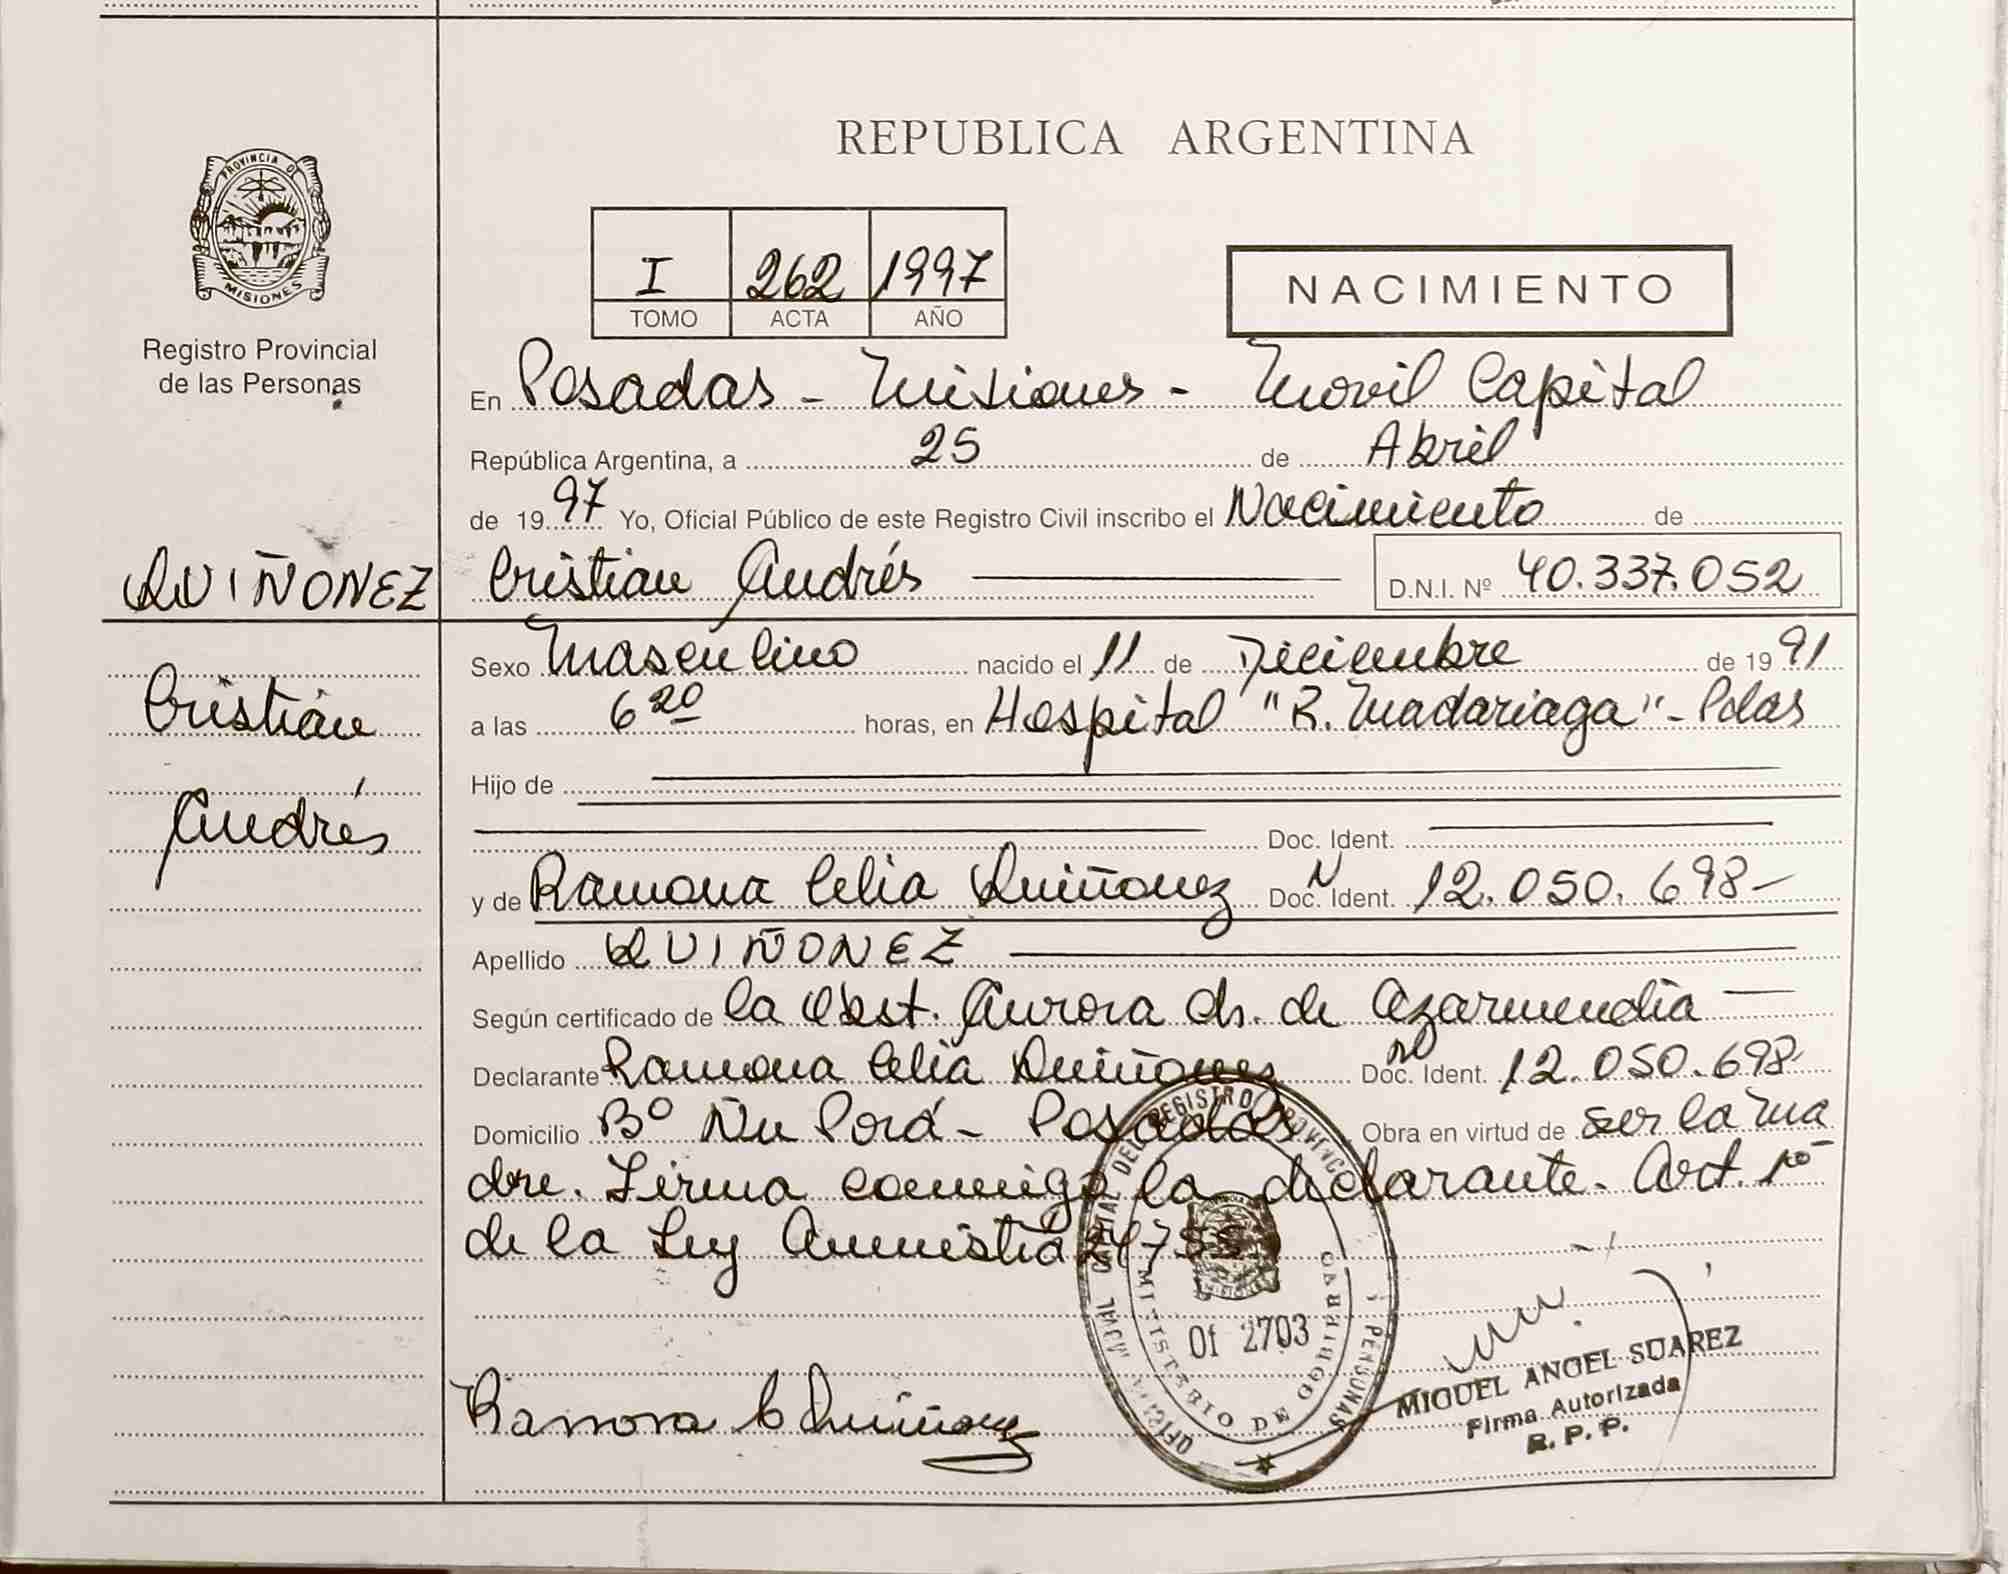 REPUBLICA ARGENTINA
PROVINCIA DE
MISIONES
Registro Provincial
de las Personas
I 262 1997
TOMO ACTA AÑO
NACIMIENTO
En Posadas - Misiones - Movil Capital
República Argentina, a 25 de Abril
de 1997 Yo, Oficial Público de este Registro Civil inscribo el Nacimiento de
QUIÑONEZ Cristian Andrés D.N.I. Nº 40.337.052
Sexo Masculino nacido el 11 de Diciembre de 1991
Cristian
a las 6 20 horas, en Hospital "R. Madariaga" - Pdas
Hijo de
Andrés
Doc. Ident.
y de Ramona Celia Quiñonez Doc. N Ident. 12.050.698-
Apellido QUIÑONEZ
Según certificado de la Obst. Aurora Ch. de Azarmendia
Declarante Ramona Celia Quiñonez Doc. Ident. 12.050.698-
Domicilio Bº Ñu Porá - Posadas Obra en virtud de ser la ma
dre. Firma conmigo la declarante. Art. 1º
de la Ley Amnistia 24755
OFICIAL MOVIL CAPITAL DEL REGISTRO PROVINCIAL PERSONAS
MINISTERIO DE GOBIERNO
Of 2703
Ramona C Quiñonez
MIGUEL ANGEL SUAREZ
Firma Autorizada
R. P. P.